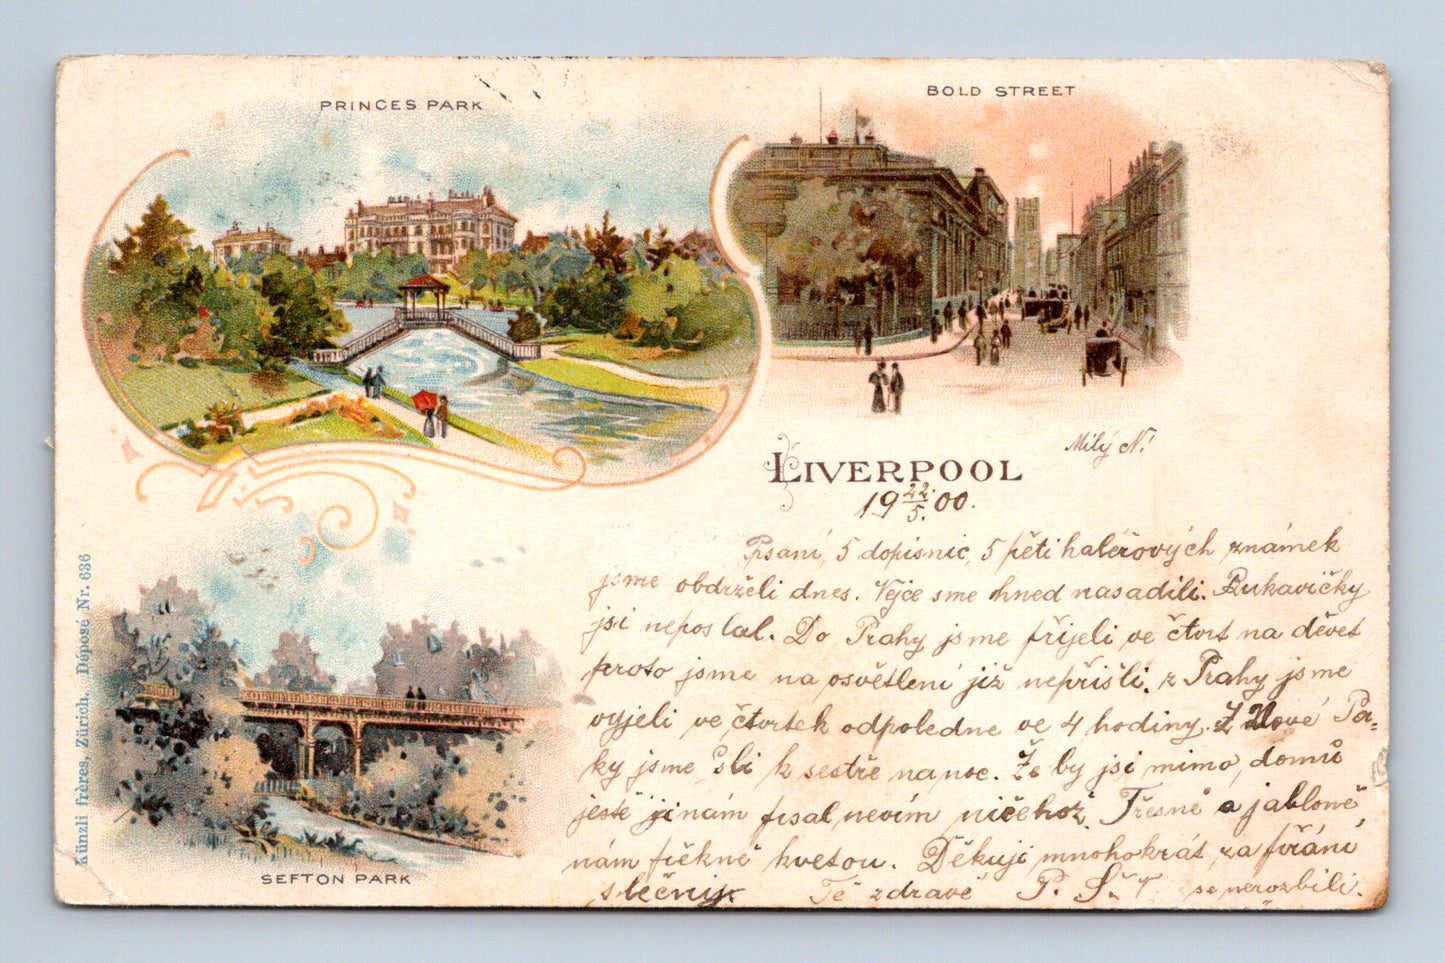 PRINCES PARK
BOLD STREET
LIVERPOOL
Milý N!
19 22/5. 00.
Psaní, 5 dopisnic, 5 pěti haléřových známek
jsme obdrželi dnes. Vejce sme hned nasadili. Rukavičky
jsi neposlal. Do Prahy jsme přijeli ve čtvrt na děvet
proto jsme na osvětlení již nepřišli. z Prahy jsme
vyjeli ve čtvrtek odpoledne ve 4 hodiny. Z Nové Pa=
ky jsme šli k sestře na noc. Že by jsi mimo domů
ještě jinám psal, nevím ničehož. Třesně a jabloně
nám pěkně kvetou. Děkuji mnohokrát za přání
slečnij. Tě zdravě P. Š. se nerozbili.
SEFTON PARK
Künzli frères, Zürich. Déposé Nr. 636